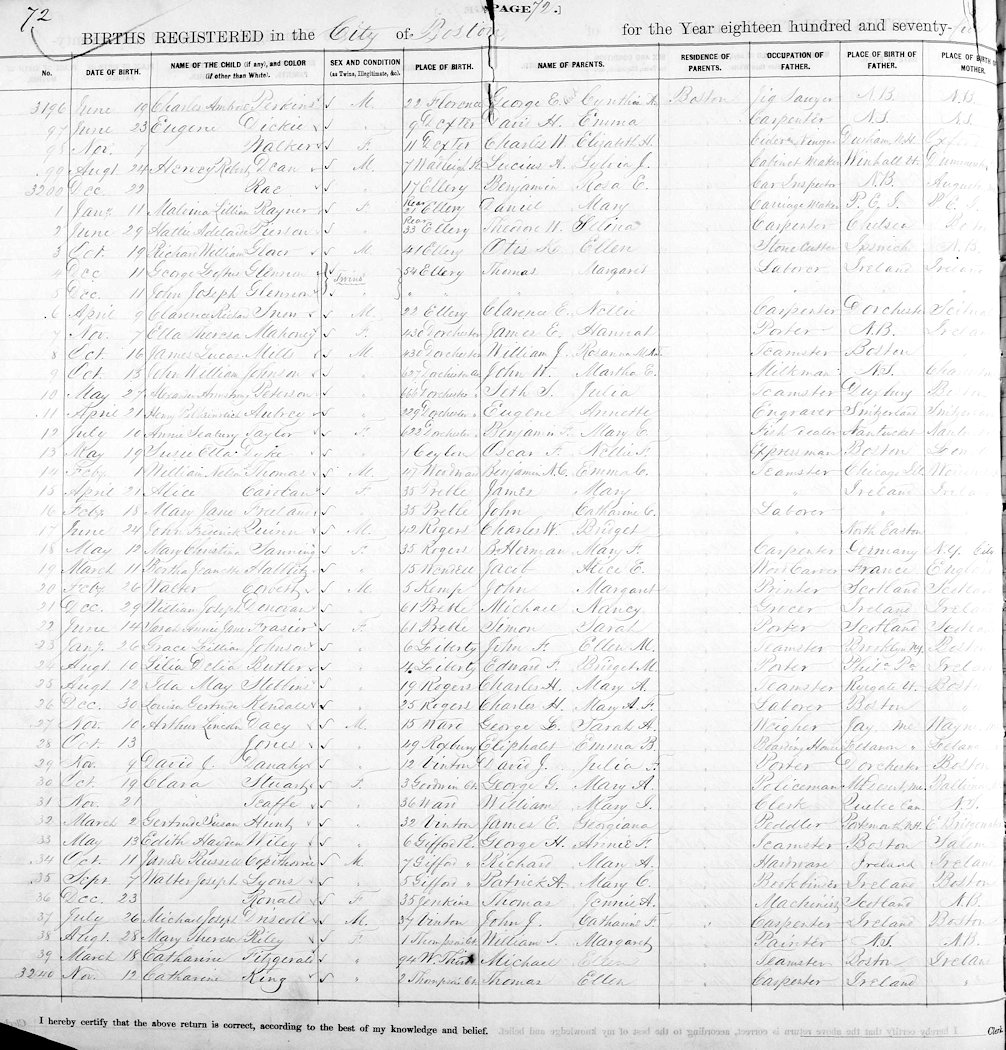 72
PAGE 72.]
BIRTHS REGISTERED in the City of Boston, for the Year eighteen hundred and seventy-
No. DATE OF BIRTH. NAME OF THE CHILD (if any), and COLOR (if other than White). SEX AND CONDITION (as Twins, Illegitimate, &c.) PLACE OF BIRTH. NAME OF PARENTS. RESIDENCE OF PARENTS. OCCUPATION OF FATHER. PLACE OF BIRTH OF FATHER. PLACE OF BIRTH OF MOTHER.
3196 June 19 Charles Ambrose Perkins S M. 22 Florence George E. & Cynthia A. Boston Jig Sawyer N.B. N.B.
97 June 23 Eugene Dickie S " 9 Dexter David H. Emma " Carpenter N.S. N.S.
98 Nov. 7 Walker S F. 11 Dexter Charles W. Elizabeth H. " Durham N.H.
99 Augt 24 Hervey Robert Dean S M. 7 Lucius A. Sylvia J. " Cabinet Maker Winhall Vt.
3200 Dec. 22 Rae S " 17 Ellery Benjamin Rosa E. " Car Inspector N.B. Augusta
1 Jany 11 Malina Lillian Rayner S F. Rear 21 Ellery Daniel Mary " Carriage Maker P.E.I. P.E.I.
2 June 29 Hattie Adelaide Pierson S " Rear 33 Ellery Theodore W. Selina " Carpenter Chelsea
3 Oct 19 William S M. 41 Ellery Otis Ellen " Stone Cutter Ipswich N.B.
4 Dec 11 George Glennon S Twins 54 Ellery Thomas Margaret " Laborer Ireland Ireland
5 Dec. 11 John Joseph Glennon S " " " " " " "
6 April 9 Clarence Snow S M. 22 Ellery Clarence E. Nellie " Carpenter Dorchester
7 Nov. 7 Ella Theresa Mahoney S F. 436 Dorchester James E. Hannah " Porter N.B.
8 Oct. 16 James Lucas Mills S M. 436 Dorchester William J. " Teamster Boston "
9 Oct. 13 John William Johnson S " 627 Dorchester Av. John W. Martha E. " Milkman N.S.
10 May 27 Armstrong Peterson S " Dorchester " Seth S. Julia " Teamster Duxbury
11 April 21 Henry Aubrey S " 329 Dorchester " Eugene Annette " Engraver Switzerland
12 July 10 Annie Seabury Taylor S F. 622 Dorchester " Benjamin F. Mary E. " Fish Dealer Nantucket
13 May 19 Susie Ella Dyke S " 1 Ceylon Oscar F. Nellie F. " Expressman Boston
14 Feby 1 William Thomas S M. 17 Woodward Benjamin N.C. Emma C. " Teamster Chicago Ill.
15 April 21 Alice Carolan S F. 35 Preble James Mary " " Ireland Ireland
16 Feby 15 Mary Jane Ireland S " 35 Preble John Catharine C. " Laborer " "
17 June 24 John Frederick Quinn S M. 42 Rogers Charles W. Bridget " " North Easton "
18 May 12 Mary Christina Fanning S F. 35 Rogers B. Herman Mary F. " Carpenter Germany N.Y. City
19 March 11 Bertha S " 15 Wendell Jacob Alice E. " Wood Carver France England
20 Feby 26 Walter S M. 5 Kemp John Margaret " Printer Scotland Scotland
21 Dec. 29 William Joseph Donovan S " 61 Preble Michael Nancy " Grocer Ireland Ireland
22 June 14 Sarah Annie Jane Frasier S F. 61 Preble Simon Sarah " Porter Scotland
23 Jany. 26 Grace Lillian Johnson S " 6 Liberty John F. Ellen M. " Teamster Brooklyn N.Y. Boston
24 Augt 10 Lilia Delia Butler S " 4 Liberty Edward F. Bridget M. " Porter Phila. Pa. Ireland
25 Augt 12 Ida May Stebbins S " 19 Rogers Charles H. Mary A. " Teamster Ryegate Vt. Boston
26 Dec. 30 Louisa Gertrude Kendall S " 25 Rogers Charles H. Mary A. F. " Laborer Boston "
27 Nov. 10 Arthur Lincoln Dacy S M. 15 Ward George L. Sarah H. " Weigher Jay Me
28 Oct. 13 Jones S " 29 Roxbury Eliphalet Emma B. " Lebanon "
29 Nov. 9 David J. Danahy S " 12 Vinton David J. Julia F. " Porter Dorchester Boston
30 Oct. 19 Clara Stuart S F. 3 Goodwin Ct. George G. Mary A. " Policeman
31 Nov. 21 Scaffe S " 36 Ward William Mary J. " Clerk Quebec Can. N.S.
32 March 2 Gertrude Susan Hunt S " 32 Vinton James E. Georgiana " Peddler Portsmouth N.H. E. Bridgewater
33 May 13 Edith Hayden Wiley S " 6 George H. Annie F. " Teamster Boston Salem
34 Oct. 11 Russell Copithorne S M. 7 " Richard Mary A. " Hardware Ireland Ireland
35 Sept. 7 Walter Joseph Lyons S " 5 " Patrick A. Mary C. " Bookbinder Ireland Boston
36 Dec. 23 Ronald S F. 35 Jenkins Thomas Jennie A. " Machinist Scotland N.B.
37 July 26 Michael Joseph Driscoll S M. 37 Vinton John J. Catharine F. " Carpenter Ireland Boston
38 Augt. 28 Mary Theresa Riley S F. 1 Thompson Ct. William S. Margaret " Painter N.S. N.B.
39 March 18 Catharine Fitzgerald S " 94 W. Third Michael Ellen " Teamster Boston Ireland
3240 Nov. 12 Catharine King S " 2 Thompson Ct. Thomas Ellen " Carpenter Ireland "
I hereby certify that the above return is correct, according to the best of my knowledge and belief.
Clerk